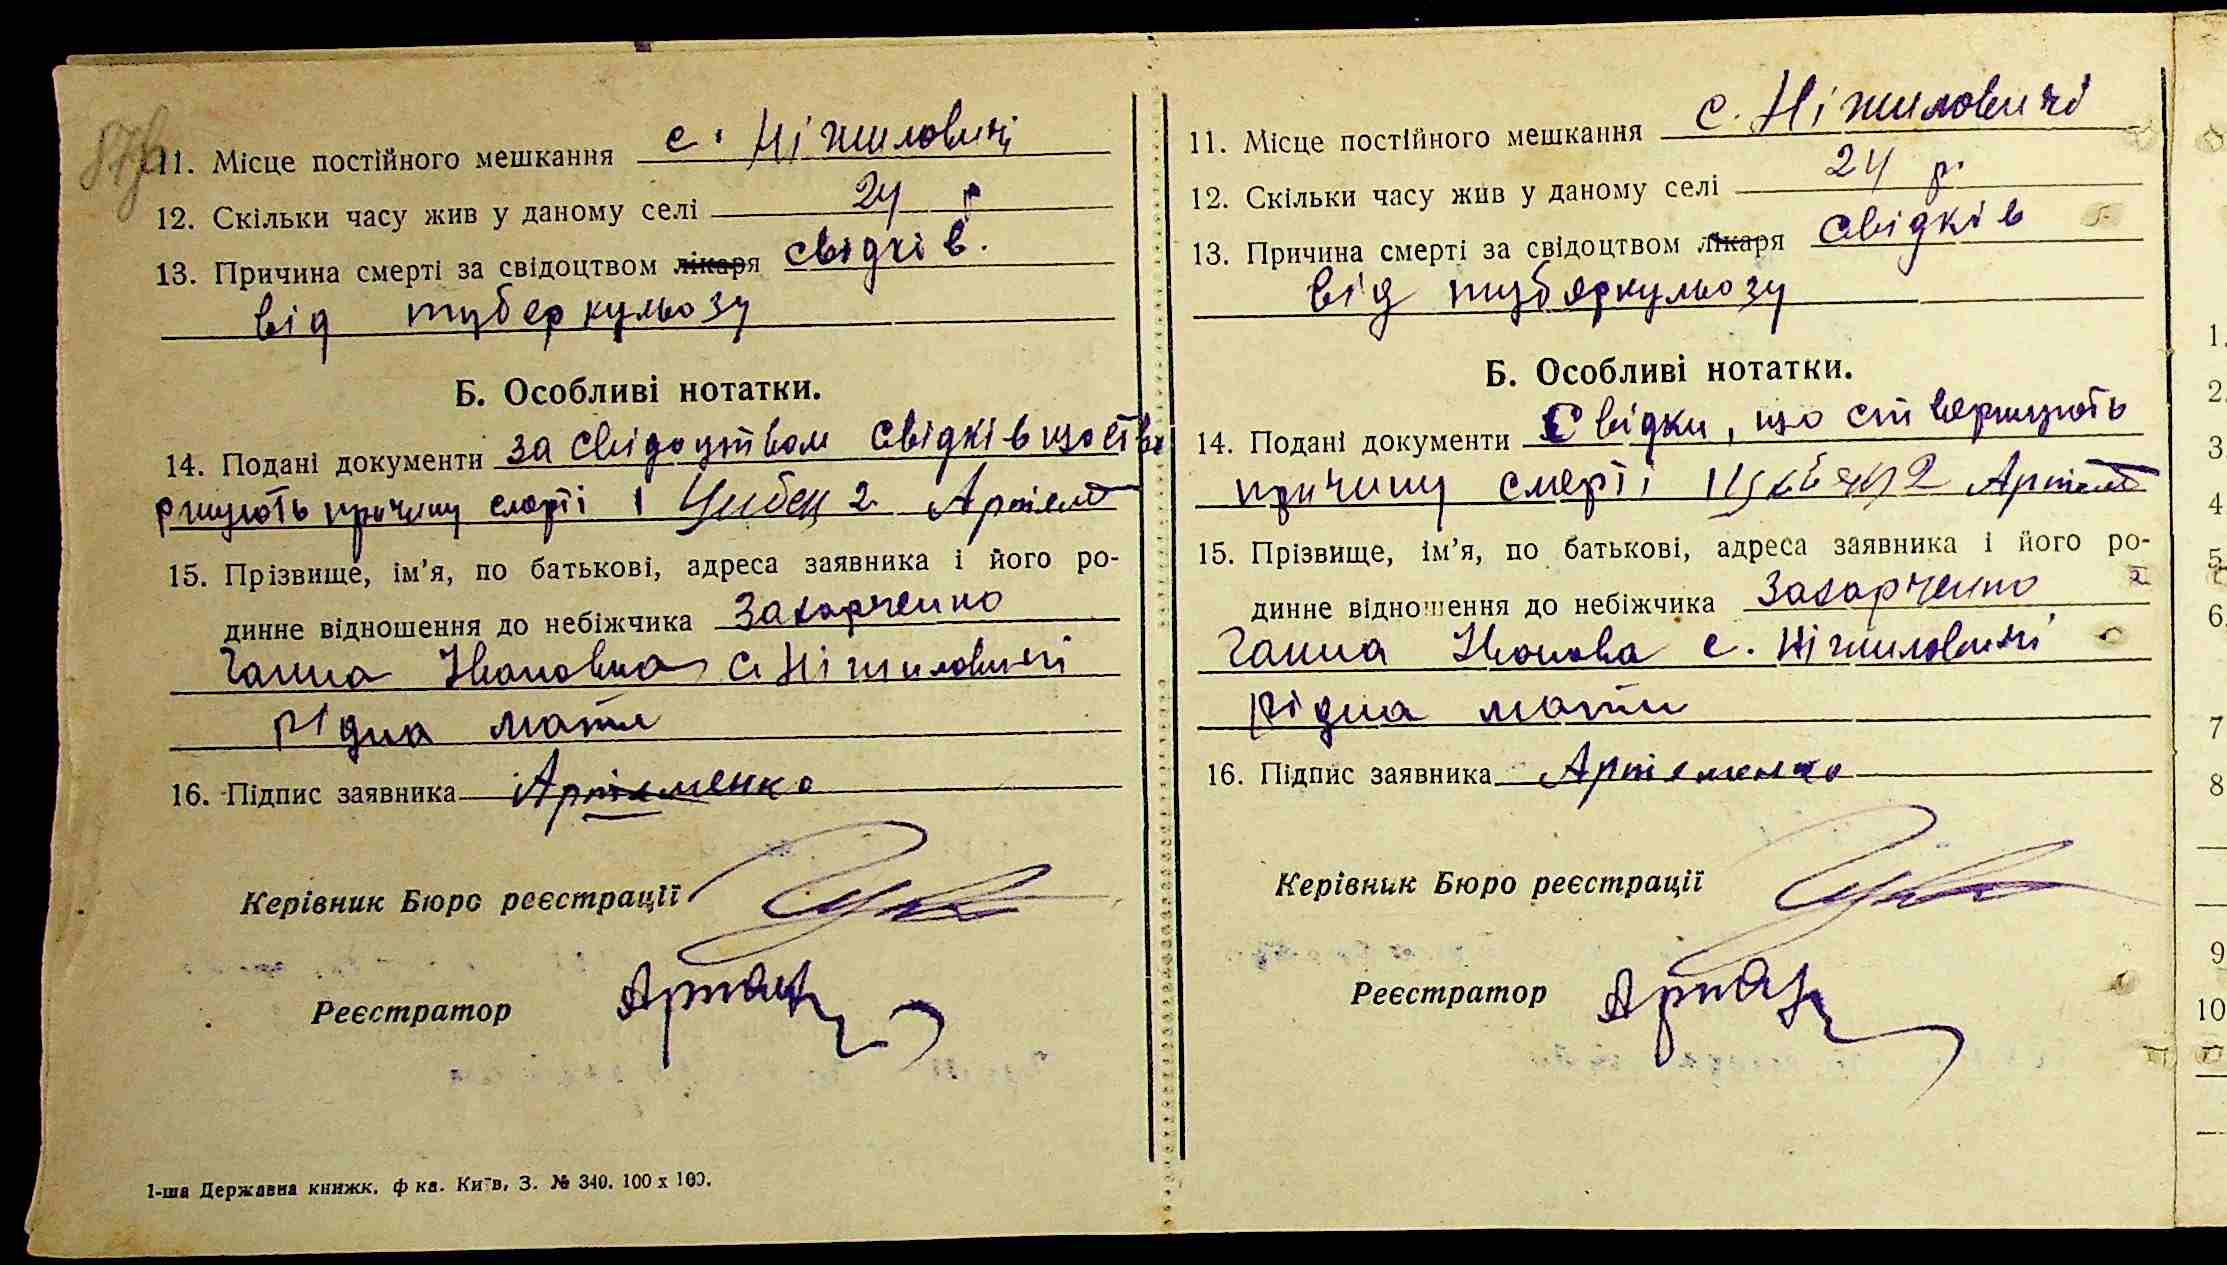 11. Місце постійного мешкання с. Ніжиловичі
12. Скільки часу жив у даному селі 24 р
13. Причина смерті за свідоцтвом лікаря свідків.
від туберкульозу
Б. Особливі нотатки.
14. Подані документи за свідоцтвом свідків що ство
ржують причину смерті 1 Цибец 2 Артем
15. Прізвище, ім'я, по батькові, адреса заявника і його ро-
динне відношення до небіжчика Захарченко
Ганна Івановна с Ніжиловичі
рідна мати
16. Підпис заявника Артеменко
Керівник Бюро реєстрації
Реєстратор
1-ша Державна книжк. ф ка. Київ, З. № 340. 100 х 100.
11. Місце постійного мешкання с. Ніжиловичі
12. Скільки часу жив у даному селі 24 р.
13. Причина смерті за свідоцтвом лікаря свідків
від туберкульозу
Б. Особливі нотатки.
14. Подані документи Свідки, що ствержують
причину смерті 2 Артем
15. Прізвище, ім'я, по батькові, адреса заявника і його ро-
динне відношення до небіжчика Захарченко
Ганна Іванова с. Ніжиловичі
рідна мати
16. Підпис заявника Артеменко
Керівник Бюро реєстрації
Реєстратор
1.
2.
3.
4.
5.
6.
7
8
9
10